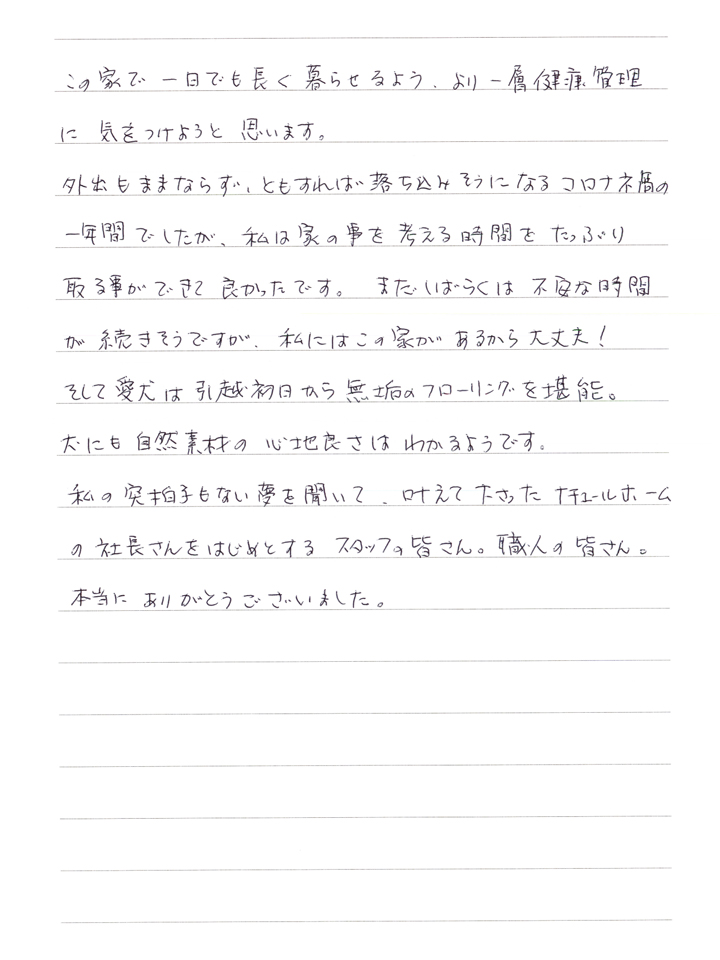 この家で一日でも長く暮らせるよう、より一層健康管理
に気をつけようと思います。
外出もままならず、ともすれば落ち込みそうになるコロナ禍の
一年間でしたが、私は家の事を考える時間をたっぷり
取る事ができて良かったです。まだしばらくは不安な時間
が続きそうですが、私にはこの家があるから大丈夫!
そして愛犬は引越初日から無垢のフローリングを堪能。
犬にも自然素材の心地良さはわかるようです。
私の突拍子もない夢を聞いて、叶えて下さったナチュールホーム
の社長さんをはじめとするスタッフの皆さん。職人の皆さん。
本当にありがとうございました。